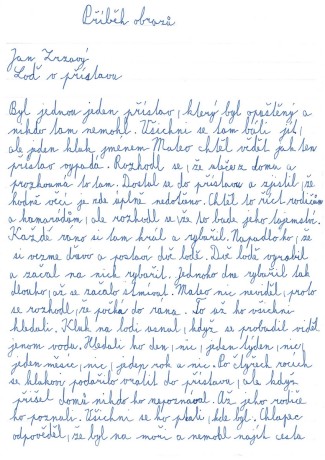 Příběh obrazů
Jan Zrzavý
Loď v přístavu
Byl jednou jeden přístav, který byl opuštěný a
nikdo tam nemohl. Všichni se tam báli jít,
ale jeden kluk jmenem Mateo chtěl vidět jak ten
přístav vypadá. Rozhodl se, že uteče z domu a
prozkoumá to tam. Dostal se do přístavu a zjistil, že
hodně věcí je zde úplně nedotčeno. Chtěl to říct rodičům
a kamarádům, ale rozhodl se, že to bude jeho tajemství.
Každé ráno si tam hrál a rybařil. Napadlo ho, že
si vezme dřevo a postaví dvě lodě. Dvě lodě vyrobil
a začal na nich rybařit. Jednoho dne rybařil tak
dlouho, až se začalo stmívat. Mateo nic neviděl, proto
se rozhodl, že počká do rana. To už ho všichni
hledali. Kluk na lodi usnul, když se probudil viděl
jenom vodu. Hledali ho den, nic, jeden týden, nic,
jeden měsíc, nic, jeden rok a nic. Po čtyrech rocích
se klukovi podařilo vrátit do přístavu, ale když
přišel domů nikdo ho nepoznával. Až jeho rodiče
ho poznali. Všichni se ho ptali, kde byl. Chlapec
odpověděl, že byl na moři a nemohl najít cestu